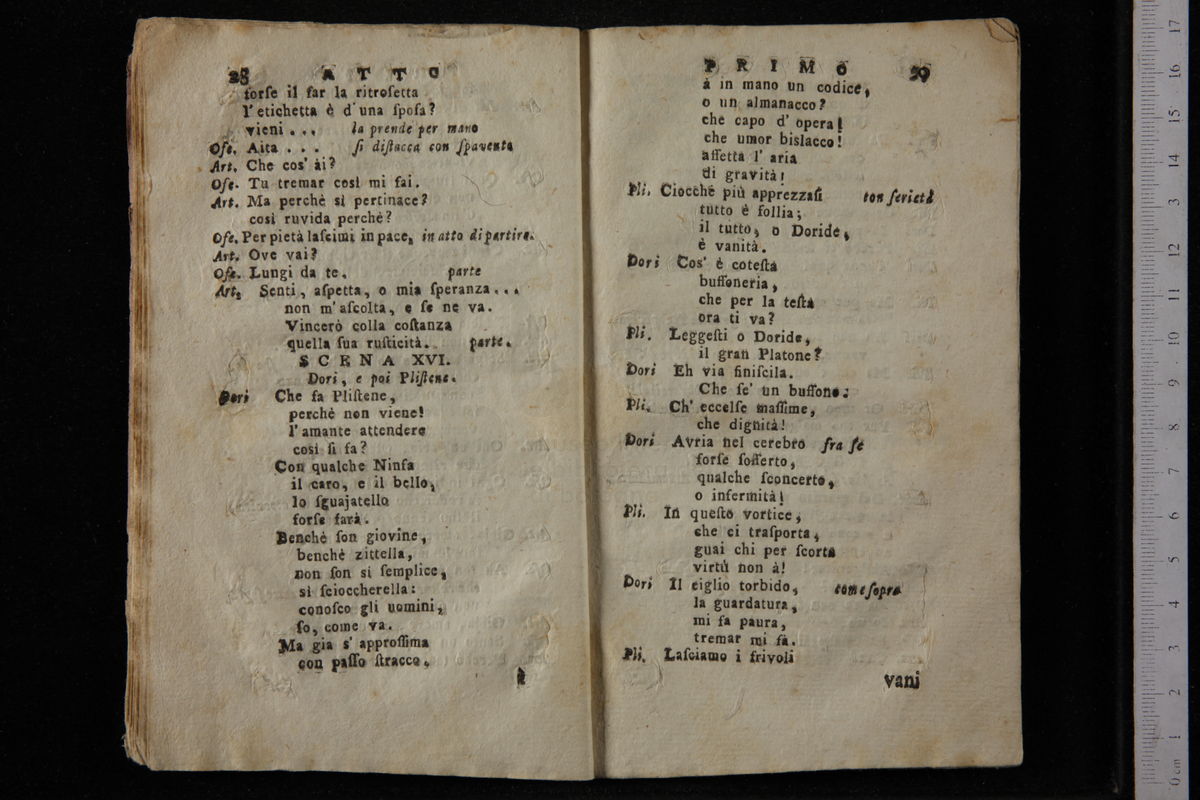 28 ATTO
forſe il far la ritroſetta
l'etichetta è d'una ſpoſa?
vieni . . . la prende per mano
Ofe. Aita . . . ſi diſtacca con ſpavento
Art. Che cos' ài?
Ofe. Tu tremar così mi fai.
Art. Ma perchè sì pertinace?
così ruvida perchè?
Ofe. Per pietà laſcimi in pace, in atto di partire.
Art. Ove vai?
Ofe. Lungi da te. parte
Art. Senti, aſpetta, o mia ſperanza...
non m'aſcolta, e ſe ne va.
Vincerò colla coſtanza
quella ſua ruſticità. parte.
SCENA XVI.
Dori, e poi Pliſtene.
Dori Che fa Pliſtene,
perchè non viene!
l'amante attendere
così ſi fa?
Con qualche Ninfa
il caro, e il bello,
lo ſguajatello
forſe farà.
Benchè ſon giovine,
benchè zittella,
non ſon sì ſemplice,
sì ſcioccherella:
conoſco gli uomini,
ſo, come va.
Ma gia s'approſſima
con paſſo ſtracco.
à
PRIMO 29
à in mano un codice,
o un almanacco?
che capo d'opera!
che umor bislacco!
affetta l'aria
di gravità!
Pli. Ciocchè più apprezzaſi con ſerietà
tutto è follia;
il tutto, o Doride,
è vanità.
Dori Cos' è coteſta
buffoneria,
che per la teſta
ora ti va?
Pli. Leggeſti o Doride,
il gran Platone?
Dori Eh via finiſcila.
Che ſe' un buffone.
Pli. Ch' eccelſe maſſime,
che dignità!
Dori Avria nel cerebro fra ſe
forſe ſofferto,
qualche ſconcerto,
o infermità!
Pli. In queſto vortice,
che ci traſporta,
guai chi per ſcorta
virtù non à!
Dori Il ciglio torbido, come ſopra
la guardatura,
mi fa paura,
tremar mi fa.
Pli. Laſciamo i frivoli
vani